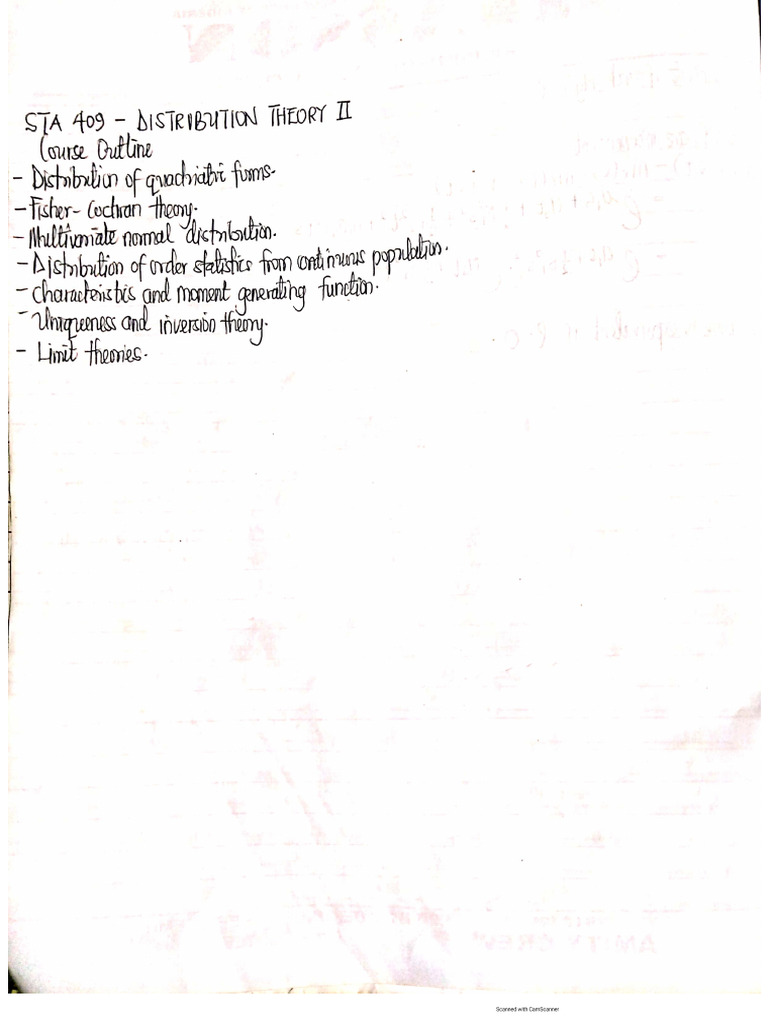 STA 409 - DISTRIBUTION THEORY II
Course Outline
- Distribution of quadriatic forms.
- Fisher-Cochran theory.
- Multivariate normal distribution.
- Distribution of order statistics from continuous population.
- Characteristics and moment generating function.
- Uniqueness and inversion theory.
- Limit theories.
Scanned with CamScanner